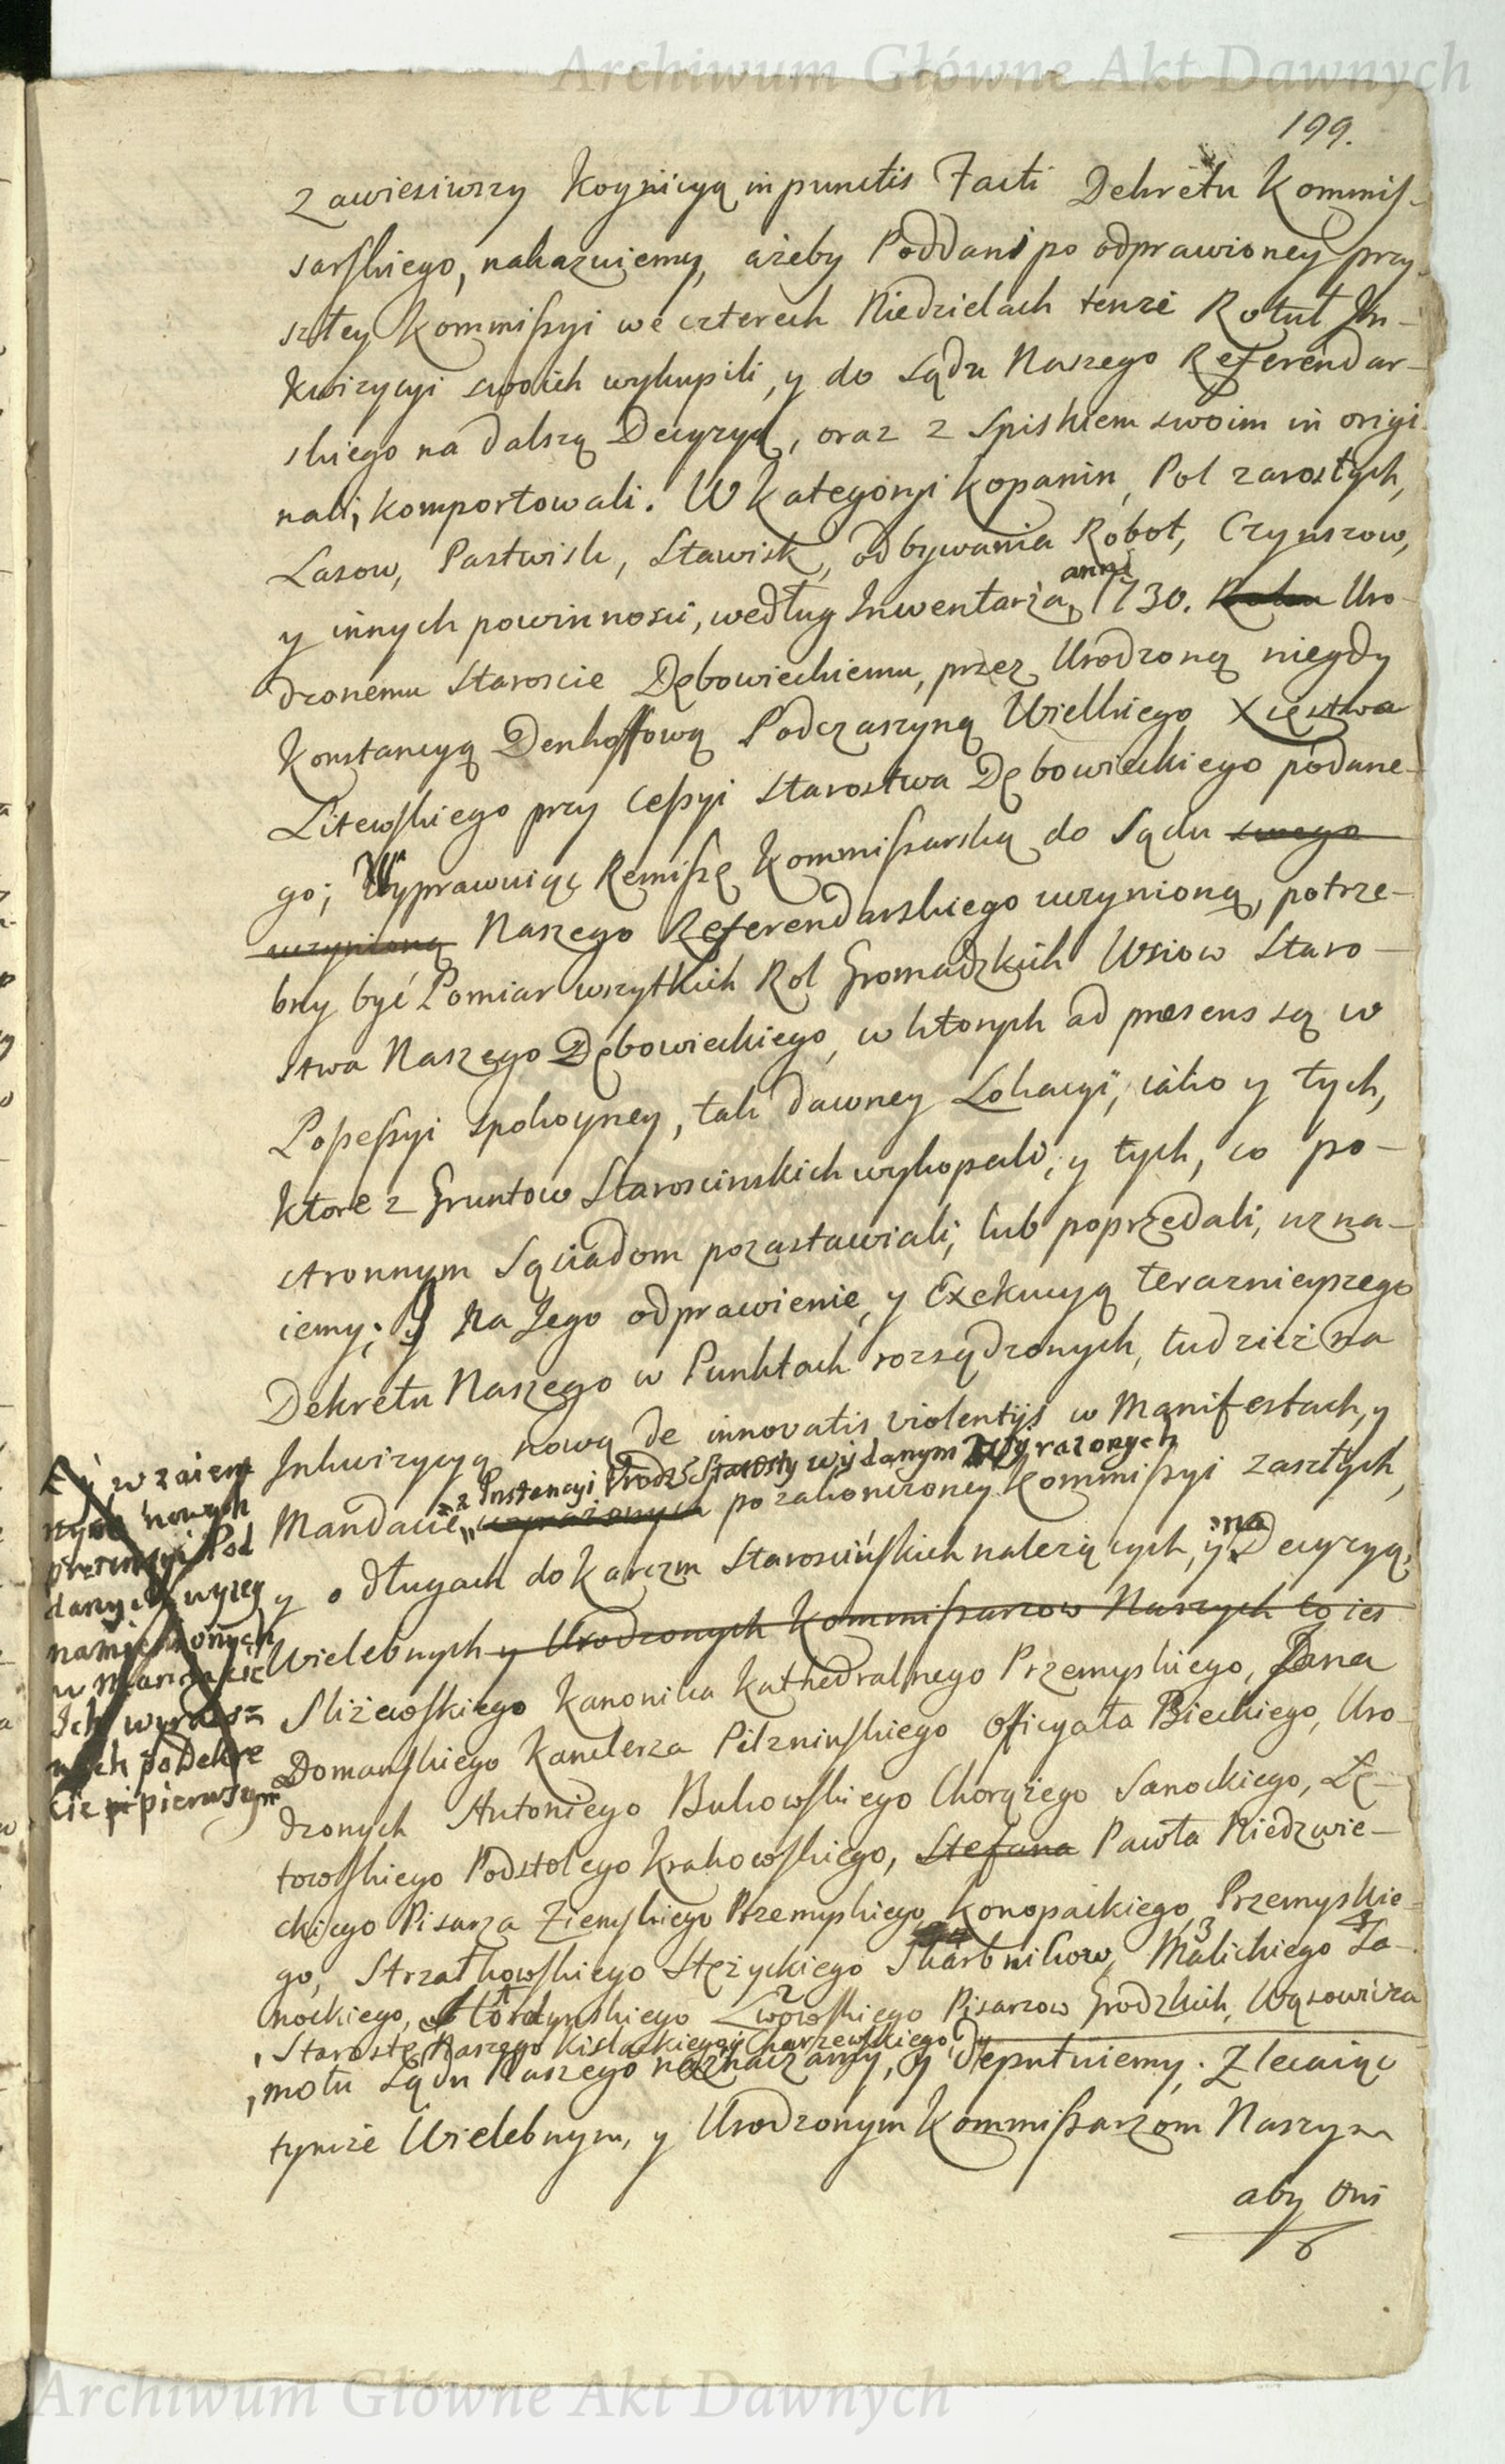 Archiwum Główne Akt Dawnych
199.
Zawiesiwszy Kognicyą in punctis Facti Dekretu Kommis-
sarskiego, nakazuiemy, ażeby Poddani po odprawioney przy-
szłey Kommissyi we czterech Niedzielach tenże Rotuł In-
kwizycyi swoich wykupili, y do Sądu Naszego Referendar-
skiego na dalszą Decyzyą, oraz z Spiskiem swoim in origi-
nali, komportowali. W Kategoryi Kopanin, Pol zarosłych,
Lasow, Pastwisk, Stawisk, odbywania Robot, Czynszow,
anni
y innych powinnosci, według Inwentarza 1730. Roku Uro-
dzonemu Staroscie Dębowieckiemu, przez Urodzoną niegdy
Konstancyą Denhoffową Podczaszyną Wielkiego Xięstwa
Litewskiego przy Cessyi Starostwa Dębowieckiego podane-
go; Wyprawuiąc Remissę Kommissarską do Sądu swego
uczynioną Naszego Referendarskiego uczynioną, potrze-
bny być Pomiar wszytkich Rol Gromadzkich Wsiow Staro-
stwa Naszego Dębowieckiego, w ktorych ad praesens są w
Possessyi spokoyney, tak dawney Lokacyi, iako y tych,
ktore z Gruntow Staroscinskich wykopali, y tych, co po-
stronnym Sąsiadom pozastawiali, lub poprzedali, uzna-
iemy; y Na Jego odprawienie, y Exekucyą teraznieyszego
Dekretu Naszego w Punktach rozsądzonych, tudzież na
Inkwizycyą nową de innovatis violentijs w Manifestach, y
z Instancyi Urodz: Starosty wydanym wyrazonych
Mandacie wyrażonych po zakonczoney Kommissyi zaszłych,
y o długach do Karczm Staroscińskich należących, y na Decyzyą,
Wielebnych y Urodzonych Kommissarzow Naszych to ies
Sliżewskiego Kanonika Kathedralnego Przemyskiego, Jana
Domanskiego Kanclerza Pilzninskiego Officyała Bieckiego, Uro-
dzonych Antoniego Bukowskiego Chorążego Sanockiego, Lę-
towskiego Podstolego Krakowskiego, Stefana Pawła Niedzwie-
ckiego Pisarza Ziemskiego Przemyskiego, Konopackiego Przemyskie-
go, Strzałkowskiego Stężyckiego Skarbnikow, Malickiego Sa-
nockiego, Lwowskiego Pisarzow Grodzkich, Wąsowicza
Starostę Naszego Kislackiego y Charzewskiego Dy
motu Sądu Naszego naznaczamy, y deputuiemy. Zlecaiąc
tymże Wielebnym, y Urodzonym Kommissarzom Naszym
aby Oni
y wzaiem
nowych
Pod
danych wyzey
namienionych
w
Ich
nych po Dekre
cie pierwszym
Archiwum Główne Akt Dawnych